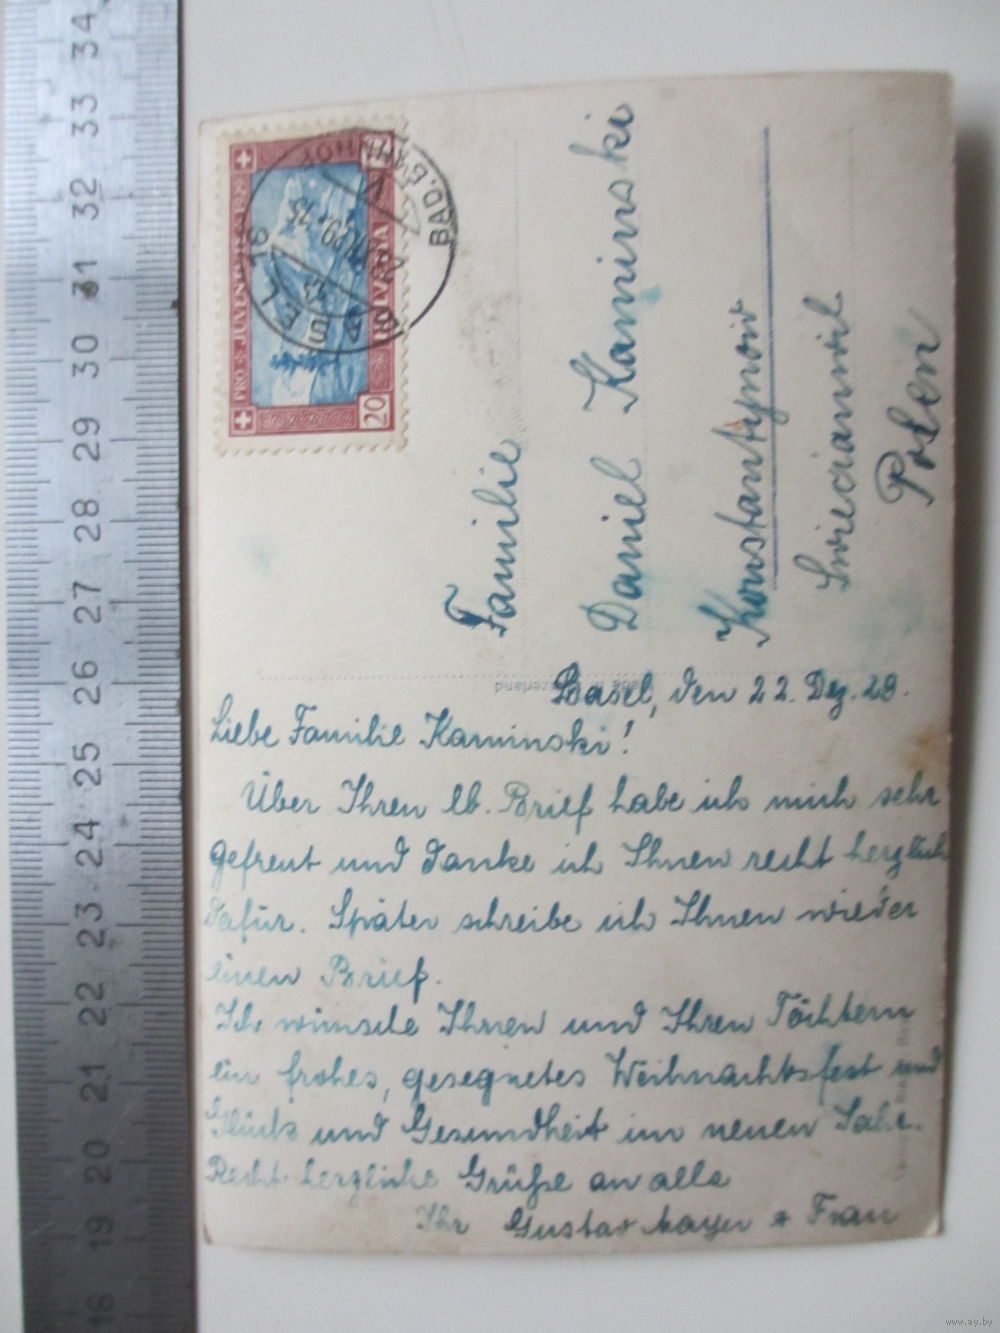 34
33
32
31
30
29
28
27
26
25
24
23
22
21
20
19
18
PRO JUVENTUTE 1929
HELVETIA
20
BASEL 16
BAD. BAHNHOF
Familie
Daniel Kaminski
Konstantynow
Swiecianwil
Polen
Switzerland
Basel, den 22. Dez. 29.
Liebe Familie Kaminski!
Über Ihren lb. Brief habe ich mich sehr
gefreut und danke ich Ihnen recht herzlich
dafür. Später schreibe ich Ihnen wieder
einen Brief.
Ich wünsche Ihnen und Ihren Töchtern
ein frohes, gesegnetes Weihnachtsfest und
Glück und Gesundheit im neuen Jahr.
Recht herzliche Grüße an alle
Ihr Gustav Mayer + Frau
www.ay.by